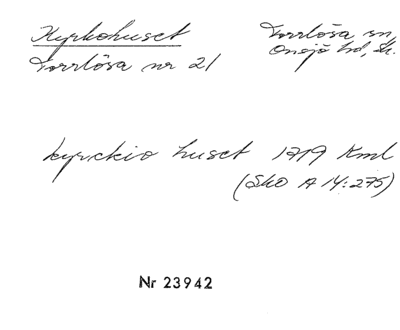 Kyrkohuset
Torrlösa sn,
Torrlösa nr 21
Onsjö hd, Sk.
kyrckio huset 1719 Kml
(SkO A 14:275)
Nr 23942